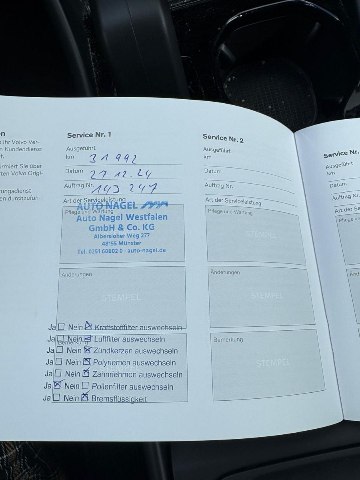 Service Nr. 1
Ausgeführt
km 31 992
Datum 27.12.24
Auftrag Nr. 143 247
Art der Serviceleistung
Pflege und Wartung
AUTO NAGEL
Auto Nagel Westfalen
GmbH & Co. KG
Albersloher Weg 277
48155 Münster
Tel. 0251 60802 0 · auto-nagel.de
Änderungen
STEMPEL
Ja Nein Kraftstofffilter auswechseln
Ja Nein Luftfilter auswechseln
Ja Nein Zündkerzen auswechseln
Ja Nein Polyriemen auswechseln
Ja Nein Zahnriemen auswechseln
Ja Nein Pollenfilter auswechseln
Ja Nein Bremsflüssigkeit
Service Nr. 2
Ausgeführt
km
Datum
Auftrag Nr.
Art der Serviceleistung
Pflege und Wartung
STEMPEL
Änderungen
STEMPEL
Bemerkung
STEMPEL
Service Nr.
Ausgeführt
km
Datum
Auftrag Nr.
Art der Ser
Pflege und
Änderung